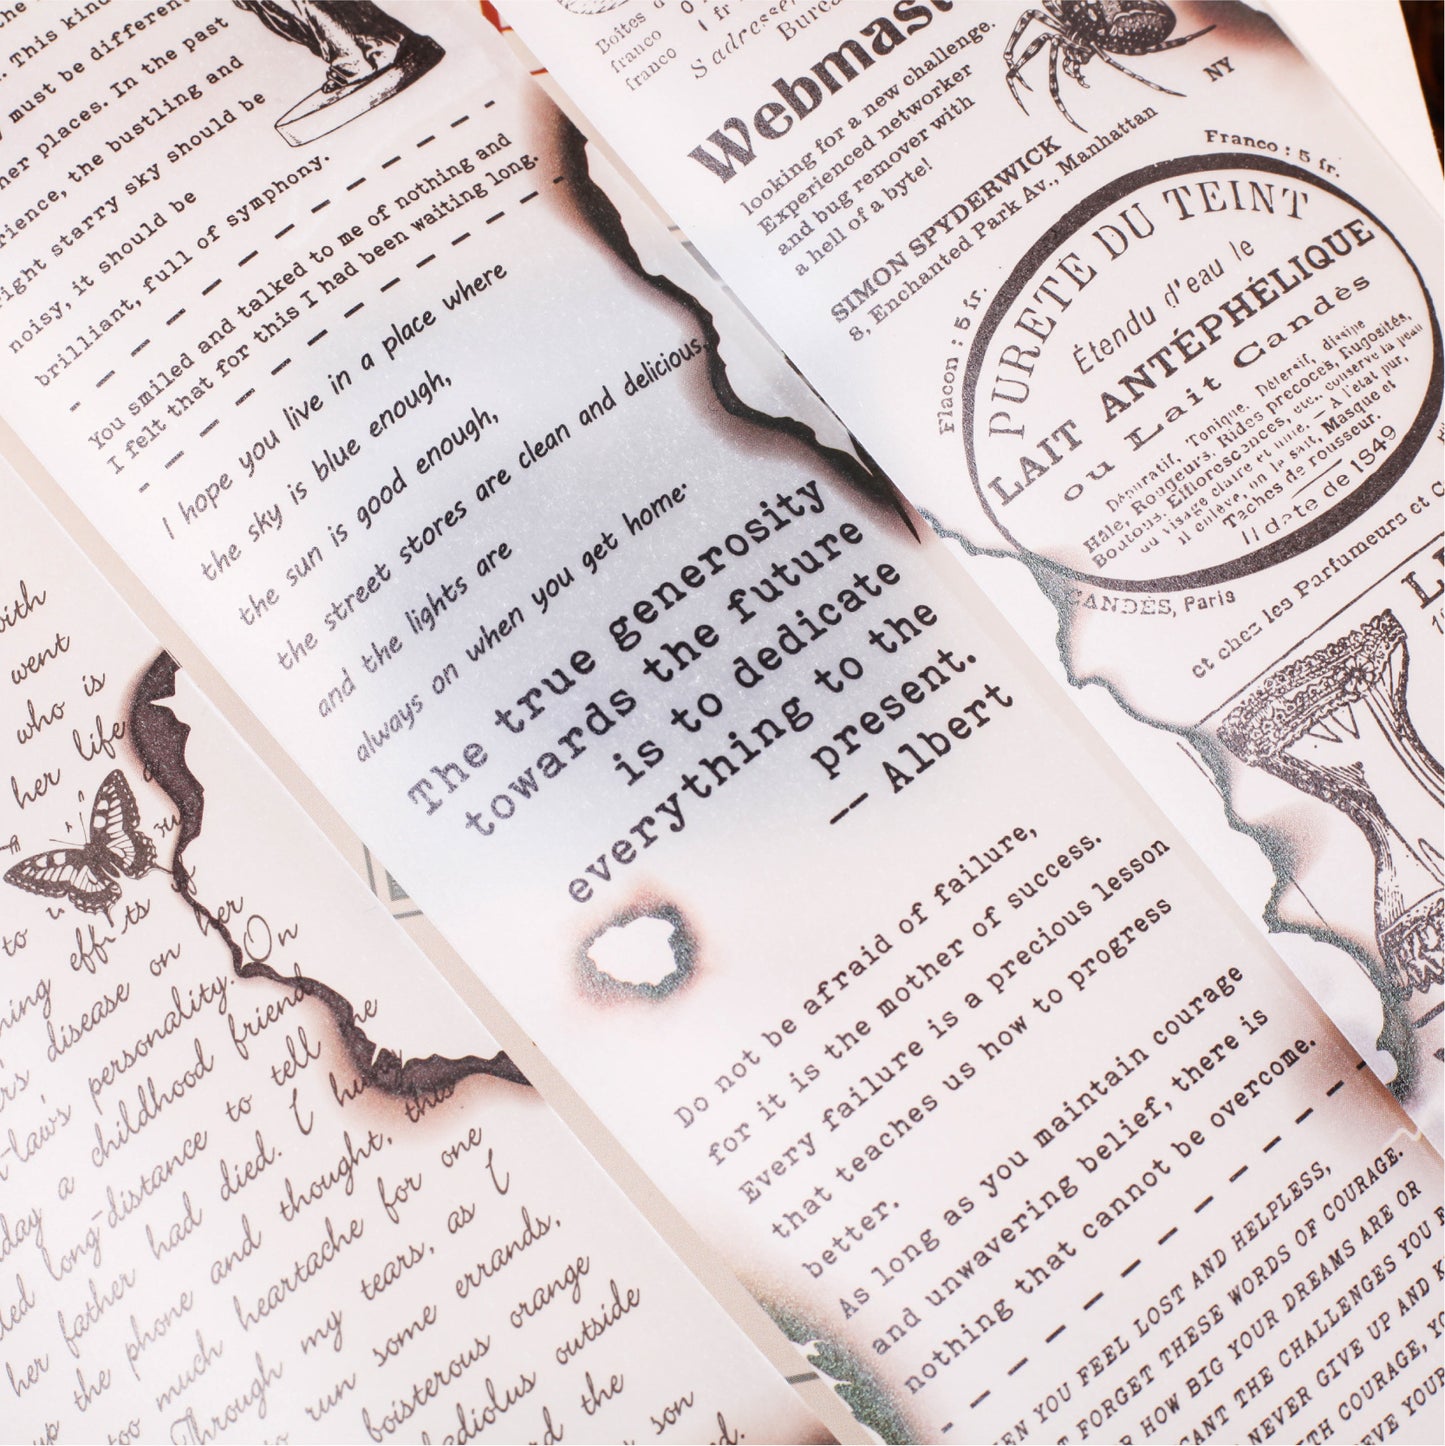 . This kind
must be different
her places. In the past
rience, the bustling and
ight starry sky should be
noisy, it should be
brilliant, full of symphony.
You smiled and talked to me of nothing and
I felt that for this I had been waiting long.
I hope you live in a place where
the sky is blue enough,
the sun is good enough,
the street stores are clean and delicious,
and the lights are
always on when you get home.
The true generosity
towards the future
is to dedicate
everything to the
present.
-- Albert
Do not be afraid of failure,
for it is the mother of success.
Every failure is a precious lesson
that teaches us how to progress
better.
As long as you maintain courage
and unwavering belief, there is
nothing that cannot be overcome.
EN YOU FEEL LOST AND HELPLESS,
FORGET THESE WORDS OF COURAGE.
HOW BIG YOUR DREAMS ARE OR
CANT THE CHALLENGES YOU
NEVER GIVE UP AND K
TH COURAGE, YO
EVE YOUR
with
went
who is
her life
to
ning eff ts
rs disease on her
t-law's personality. On
day a childhood friend
led long-distance to tell me
her father had died. I hung
up the phone and thought, this
too much heartache for one
Through my tears, as I
to run some errands,
boisterous orange
ladiolus outside
d the
son
d.
Boites d
franco
franco
1 fr
S'adresser
Bureau
Webmast
looking for a new challenge.
Experienced networker
and bug remover with
a hell of a byte!
SIMON SPYDERWICK
8, Enchanted Park Av., Manhattan
NY
Flacon : 5 fr.
Franco : 5 fr.
PURETÉ DU TEINT
Étendu d'eau le
LAIT ANTÉPHÉLIQUE
ou Lait Candès
Dépuratif, Tonique, Détersif, dissipe
Hale, Rougeurs, Rides précoces, Rugosités,
Boutons, Efflorescences, etc., conserve la peau
du visage claire et unie. — A l'état pur,
il enlève, on le sait, Masque et
Taches de rousseur.
Il date de 1849
CANDÈS, Paris
et chez les Parfumeurs et C